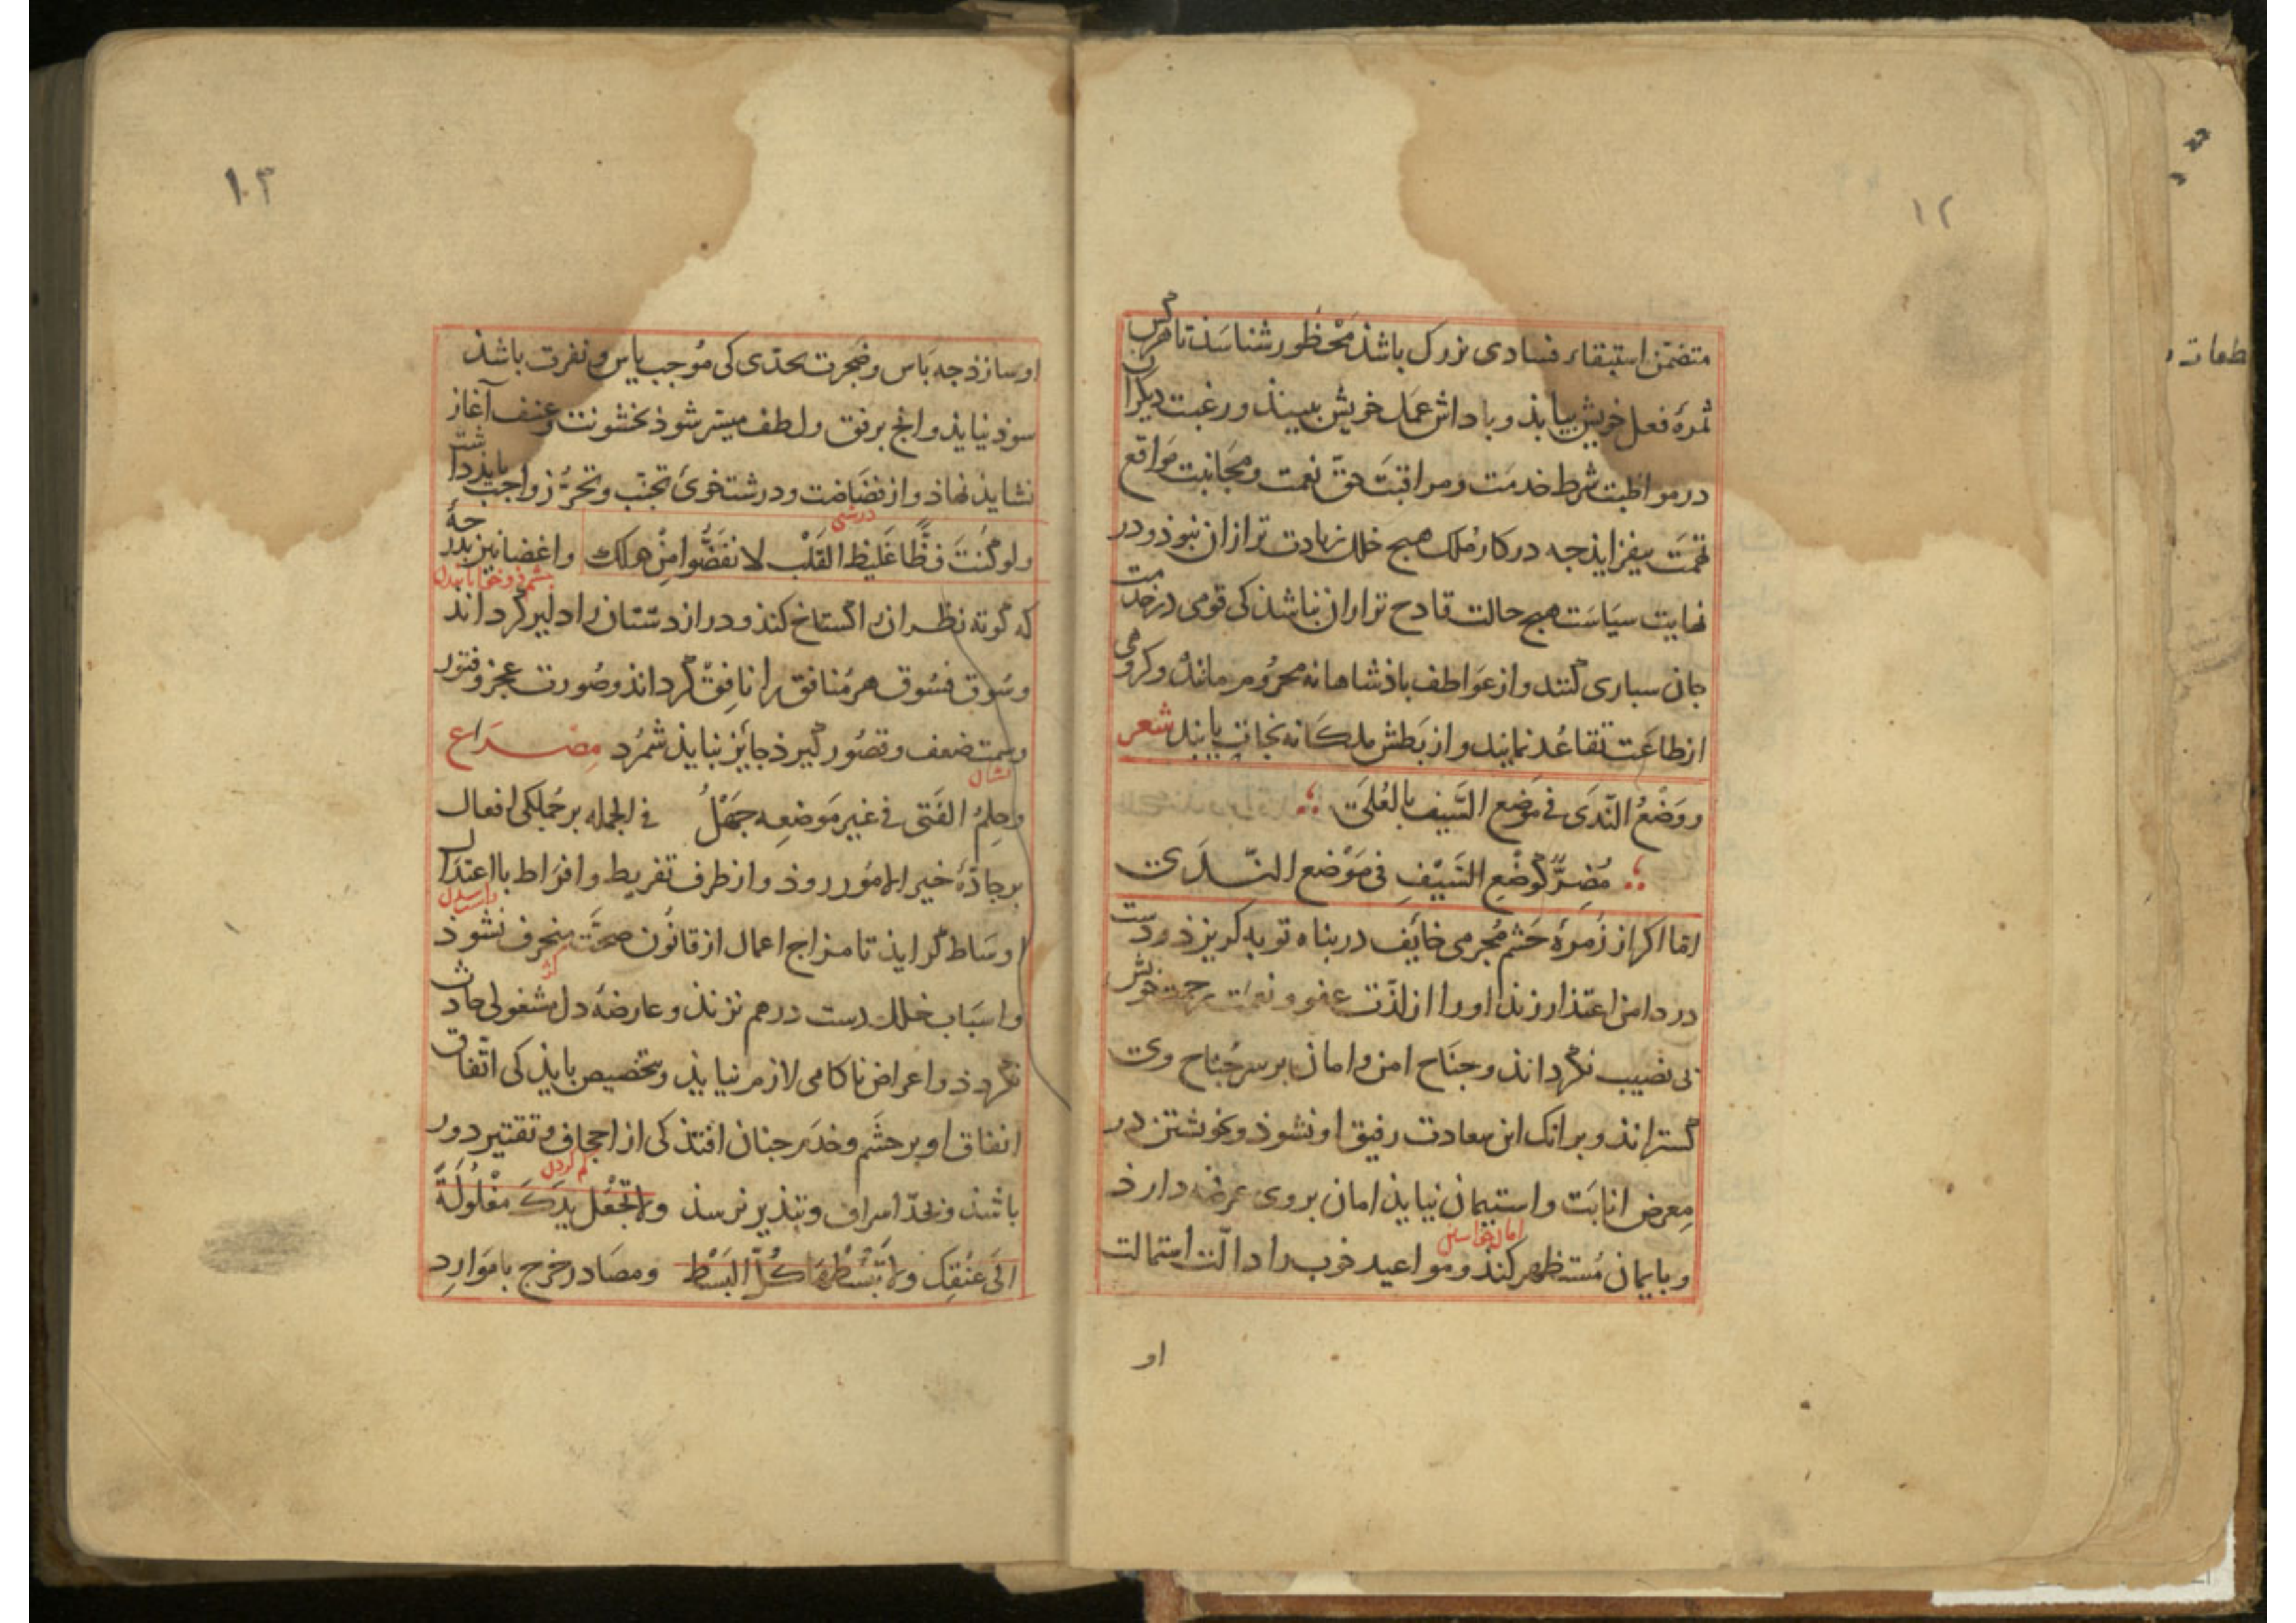 ١٢
متضمّن استبقاء فسادی بزرک باشذ مَحْظور شناسَذ تا هرکس
ثمرهٔ فعل خویش بیابذ و باداش عمَل خویش ببیند و رغبت دیکران
در مواظبت شرط خدمَت و مراقبَت حقّ نعمت و مجَانبت مَوَاقع
تهمَت بیفزایذ جه در کار مُلک هیج خلل زیادت تر ازان نبوذ و در
نهایت سیَاسَت هیج حالت قادح تر ازان نباشذ کی قومی در خدمت
جان سباری کنند و از عوَاطف باذشاهانه محرُوم مانند و کروهی
از طاعَت تقاعُد نمایند و از بَطش ملکانه نجات یابند شعر
ووَضْعُ النّدَی فی مَوضِع السَّیف بالعُلَی
مُضِرٌّ کوَضْعِ السَّیْفِ فی مَوْضع النّدَی
امّا اکر از زُمرهٔ حَشم مُجرمی خائِف در بناه توبه کریزذ و دست
در دامن اعتذار زند او را از لذّت عفو و نعمَت رحمت خویش
بی نصیب نکرداند و جنَاح امن و امان بر سر جُناح وی
کستراند و برانک این سعادت رفیق او نشوذ و بخویشتن در
مِعرض انابَت و استیمان نیایذ امان بر وی عرضه دارذ
امان خواستن
و بایمان مُستظهر کنذ و مواعید خوب را دالّت استمالت
او
١٠٣
او سازذ جه بَاس و ضجرت بحدّی کی مُوجب یاس و نفرت باشذ
سوذ نیایذ و انج برفق و لطف میسّر شوذ بخشونت و عنف آغاز
نشایذ نهاذ و از فضاضت و درشتخویٔ تجنّب و تحرُّز واجب بایذ داشت
درشتی
ولو کُنتَ فظًّا غَلیظَ القَلْب لانفَضُّوا مِنْ حولک و اغضا نیز بدرجهٔ
جشم فرو خوابانیدن
که کوته نظران را کستاخ کند و دراز دستان را دلیر کرداند
و سُوق فسُوق هر مُنافق را نافِق کرداند و صُورت عجز و فتور
و سمت ضعف و قصُور کیرذ جائز نبایذ شمُرد مِصْرَاع
نشان
و حِلمُ الفَتی فی غیر مَوضعِه جَهْلُ فی الجمله بر جملکی افعال
بر جادّهٔ خیر الامُور روذ و از طرف تفریط و افرَاط با اعتدال
اوسَاط کرایذ تا مزاج اعمال از قانُون صحَّت منحرف نشوذ
کژ
و اسبَاب خلل دست در هم نزنذ و عارضهٔ دل مشغولی حادث
نکردذ و اعراض ناکامی لازم نیایذ و بتخصیص بایذ کی اتّفاق
انفاق او بر حشَم و خدَم جنان افتذ کی از اجحاف و تقتیر دور
کم کردن
باشذ و بحدّ اسراف و تبذیر نرسذ ولا تجْعَل یدَکَ مغْلُولَةً
الَی عنُقِک ولا تَبْسُطْها کُلَّ البَسْط و مصَادر خرج با مَوَارِد